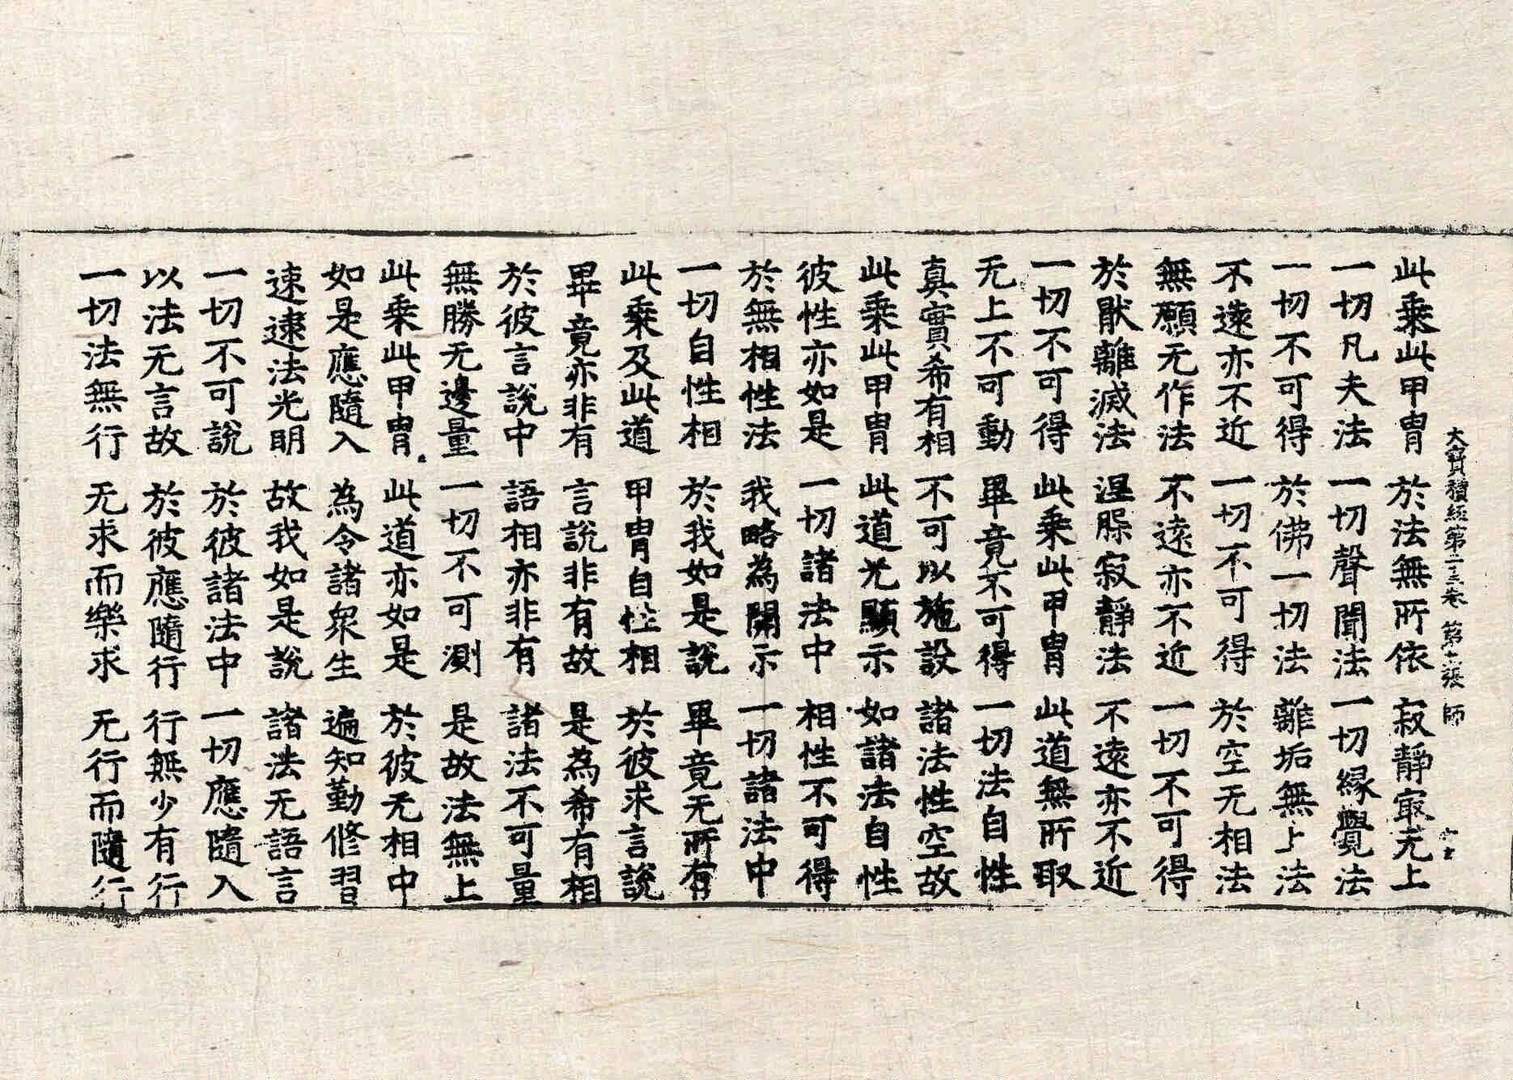 大寶積經第二三卷 第六張 師
此乘此甲冑 於法無所依 寂靜㝡无上
一切凡夫法 一切聲聞法 一切緣覺法
一切不可得 於佛一切法 離垢無上法
不遠亦不近 一切不可得 於空无相法
無願无作法 不遠亦不近 一切不可得
於猒離滅法 涅槃寂靜法 不遠亦不近
一切不可得 此乘此甲冑 此道無所取
无上不可動 畢竟不可得 一切法自性
真實希有相 不可以施設 諸法性空故
此乘此甲冑 此道光顯示 如諸法自性
彼性亦如是 一切諸法中 相性不可得
於無相性法 我略為開示 一切諸法中
一切自性相 於我如是說 畢竟无所有
此乘及此道 甲冑自性相 於彼求言說
畢竟亦非有 言說非有故 是為希有相
於彼言說中 語相亦非有 諸法不可量
無勝无邊量 一切不可測 是故法無上
此乘此甲冑 此道亦如是 於彼无相中
如是應隨入 為令諸眾生 遍知勤修習
速逮法光明 故我如是說 諸法无語言
一切不可說 於彼諸法中 一切應隨入
以法无言故 於彼應隨行 行無少有行
一切法無行 无求而樂求 无行而隨行